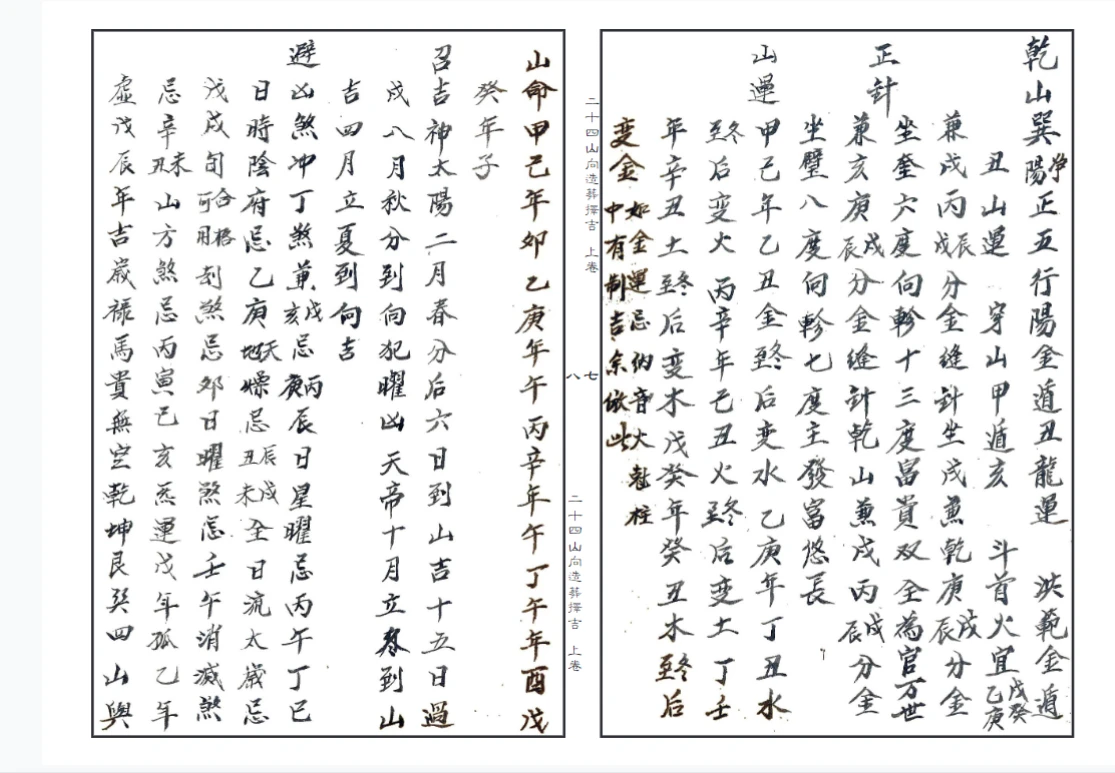 乾山巽陽淨正五行陽金遁丑龍運 洪範金遁
丑山運 穿山甲遁亥 斗首火宜戊癸乙庚
兼戌丙戌辰分金縫針坐戌兼乾庚戌辰分金
正針
坐奎六度向軫十三度富貴双全為官万世
兼亥庚戌辰分金縫針乾山兼戌丙戌辰分金
坐壁八度向軫七度主發富悠長
山運甲己年乙丑金至冬后变水乙庚年丁丑水
至冬后变火丙辛年己丑火至冬后变土丁壬
年辛丑土至冬后变木戊癸年癸丑木至冬后
变金如金運忌納音火剋柱中有制吉余倣此
二十四山向造葬擇吉 上卷
七
八
二十四山向造葬擇吉 上卷
山命甲己年卯乙庚年午丙辛年午丁午年酉戊
癸年子
召吉神太陽二月春分后六日到山吉十五日過
戌八月秋分到向犯曜凶天帝十月立冬到山
吉四月立夏到向吉
避凶煞冲丁煞兼戌亥忌丙庚辰日星曜忌丙午丁巳
日時陰府忌乙庚天地燥忌辰戌丑未全日流太歲忌
戊戌旬合格可用刦煞忌卯日曜煞忌壬午消滅煞
忌辛未丑山方煞忌丙寅己亥忌運戊年孤乙年
虛戊辰年吉歲祿馬貴無空乾坤艮巽四山與